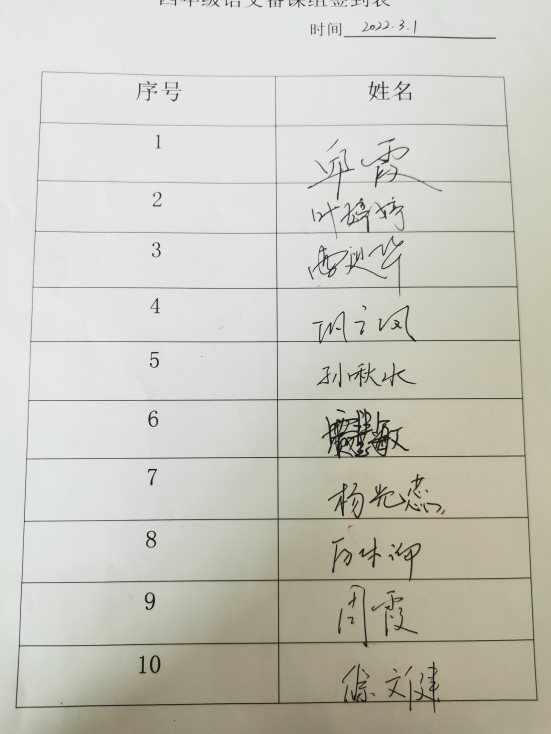 四年级语文备课组签到表
时间 2022.3.1
序号 姓名
1 霞
2 叶婷婷
3 华
4 凤
5 孙秋水
6 敏
7 杨光蕊
8
9 周霞
10 徐文健